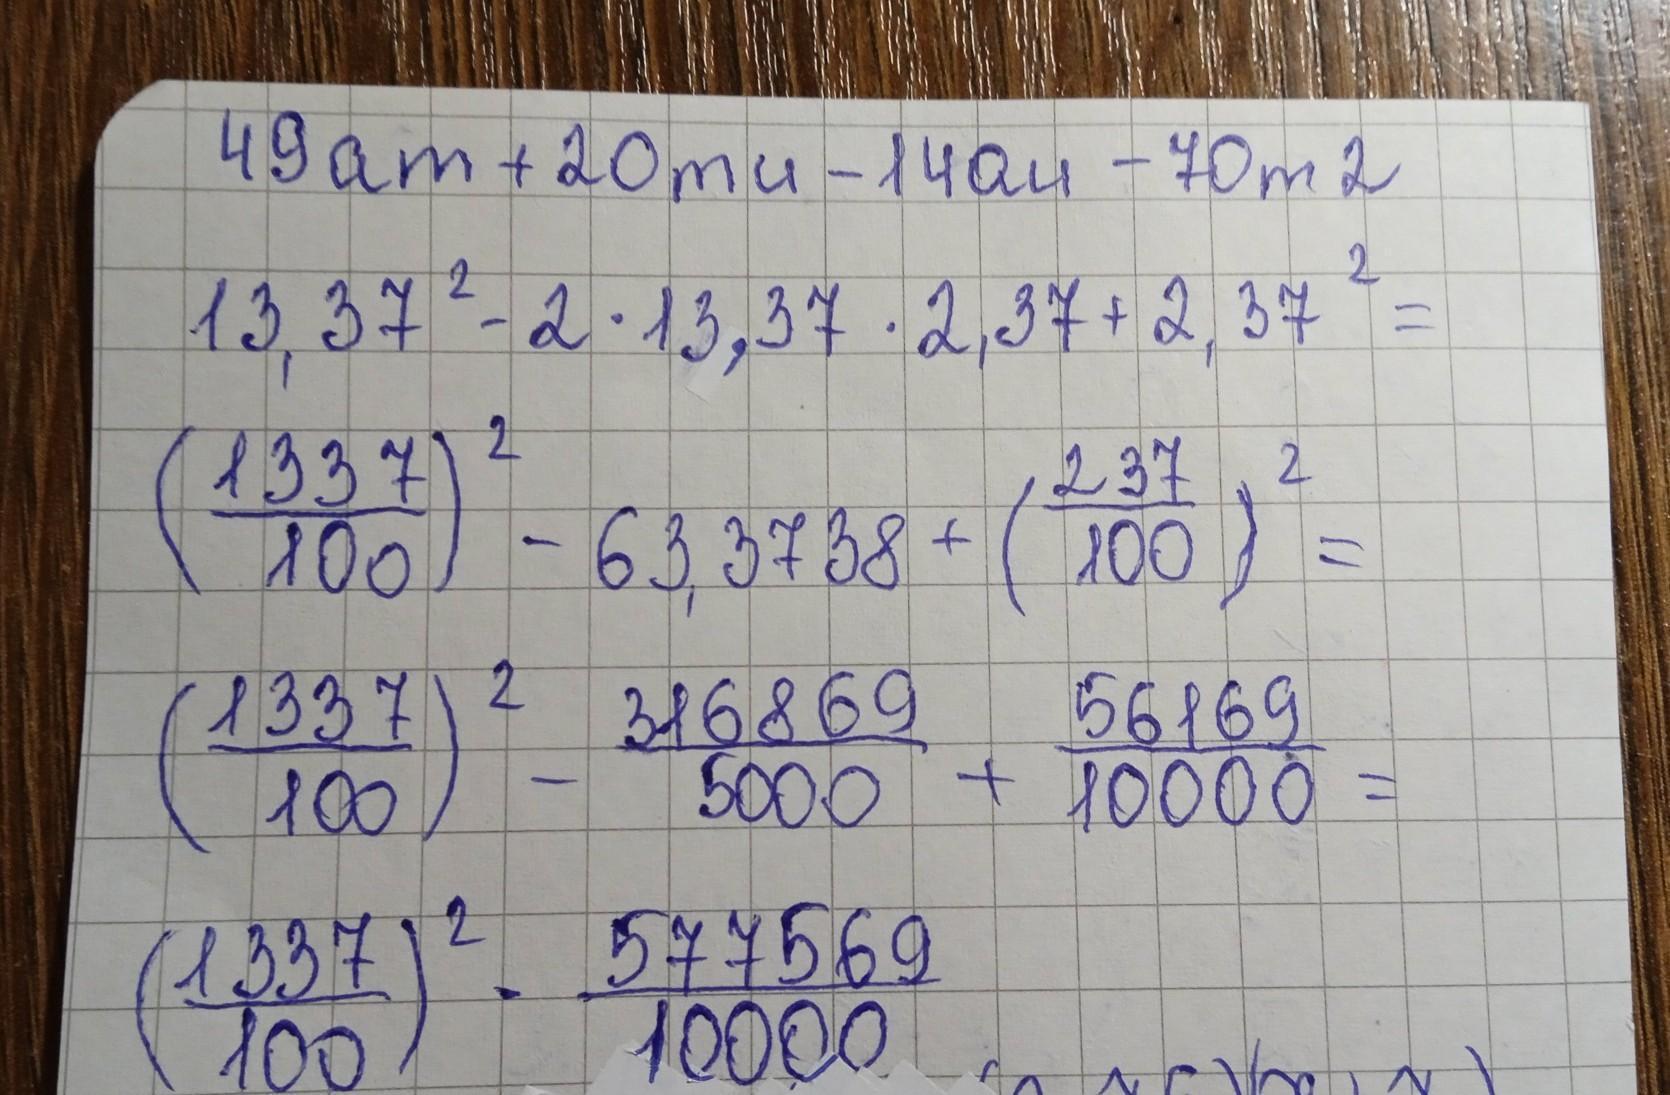 49am + 20mu - 14au - 70m2
13,37² - 2 · 13,37 · 2,37 + 2,37² =
(1337/100)² - 63,3738 + (237/100)² =
(1337/100)² - 316869/5000 + 56169/10000 =
(1337/100)² - 577569/10000